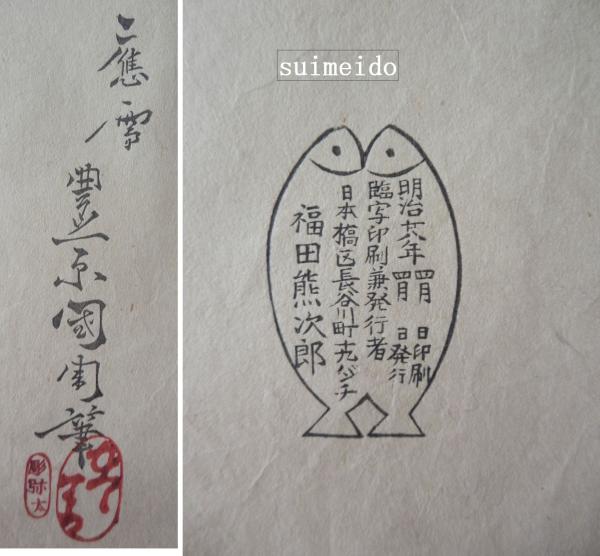 應需
豊原國周筆
彫弥太
suimeido
明治廿八年 四月 日印刷
四月 日発行
臨写印刷兼発行者
日本橋区長谷川町十九バンチ
福田熊次郎